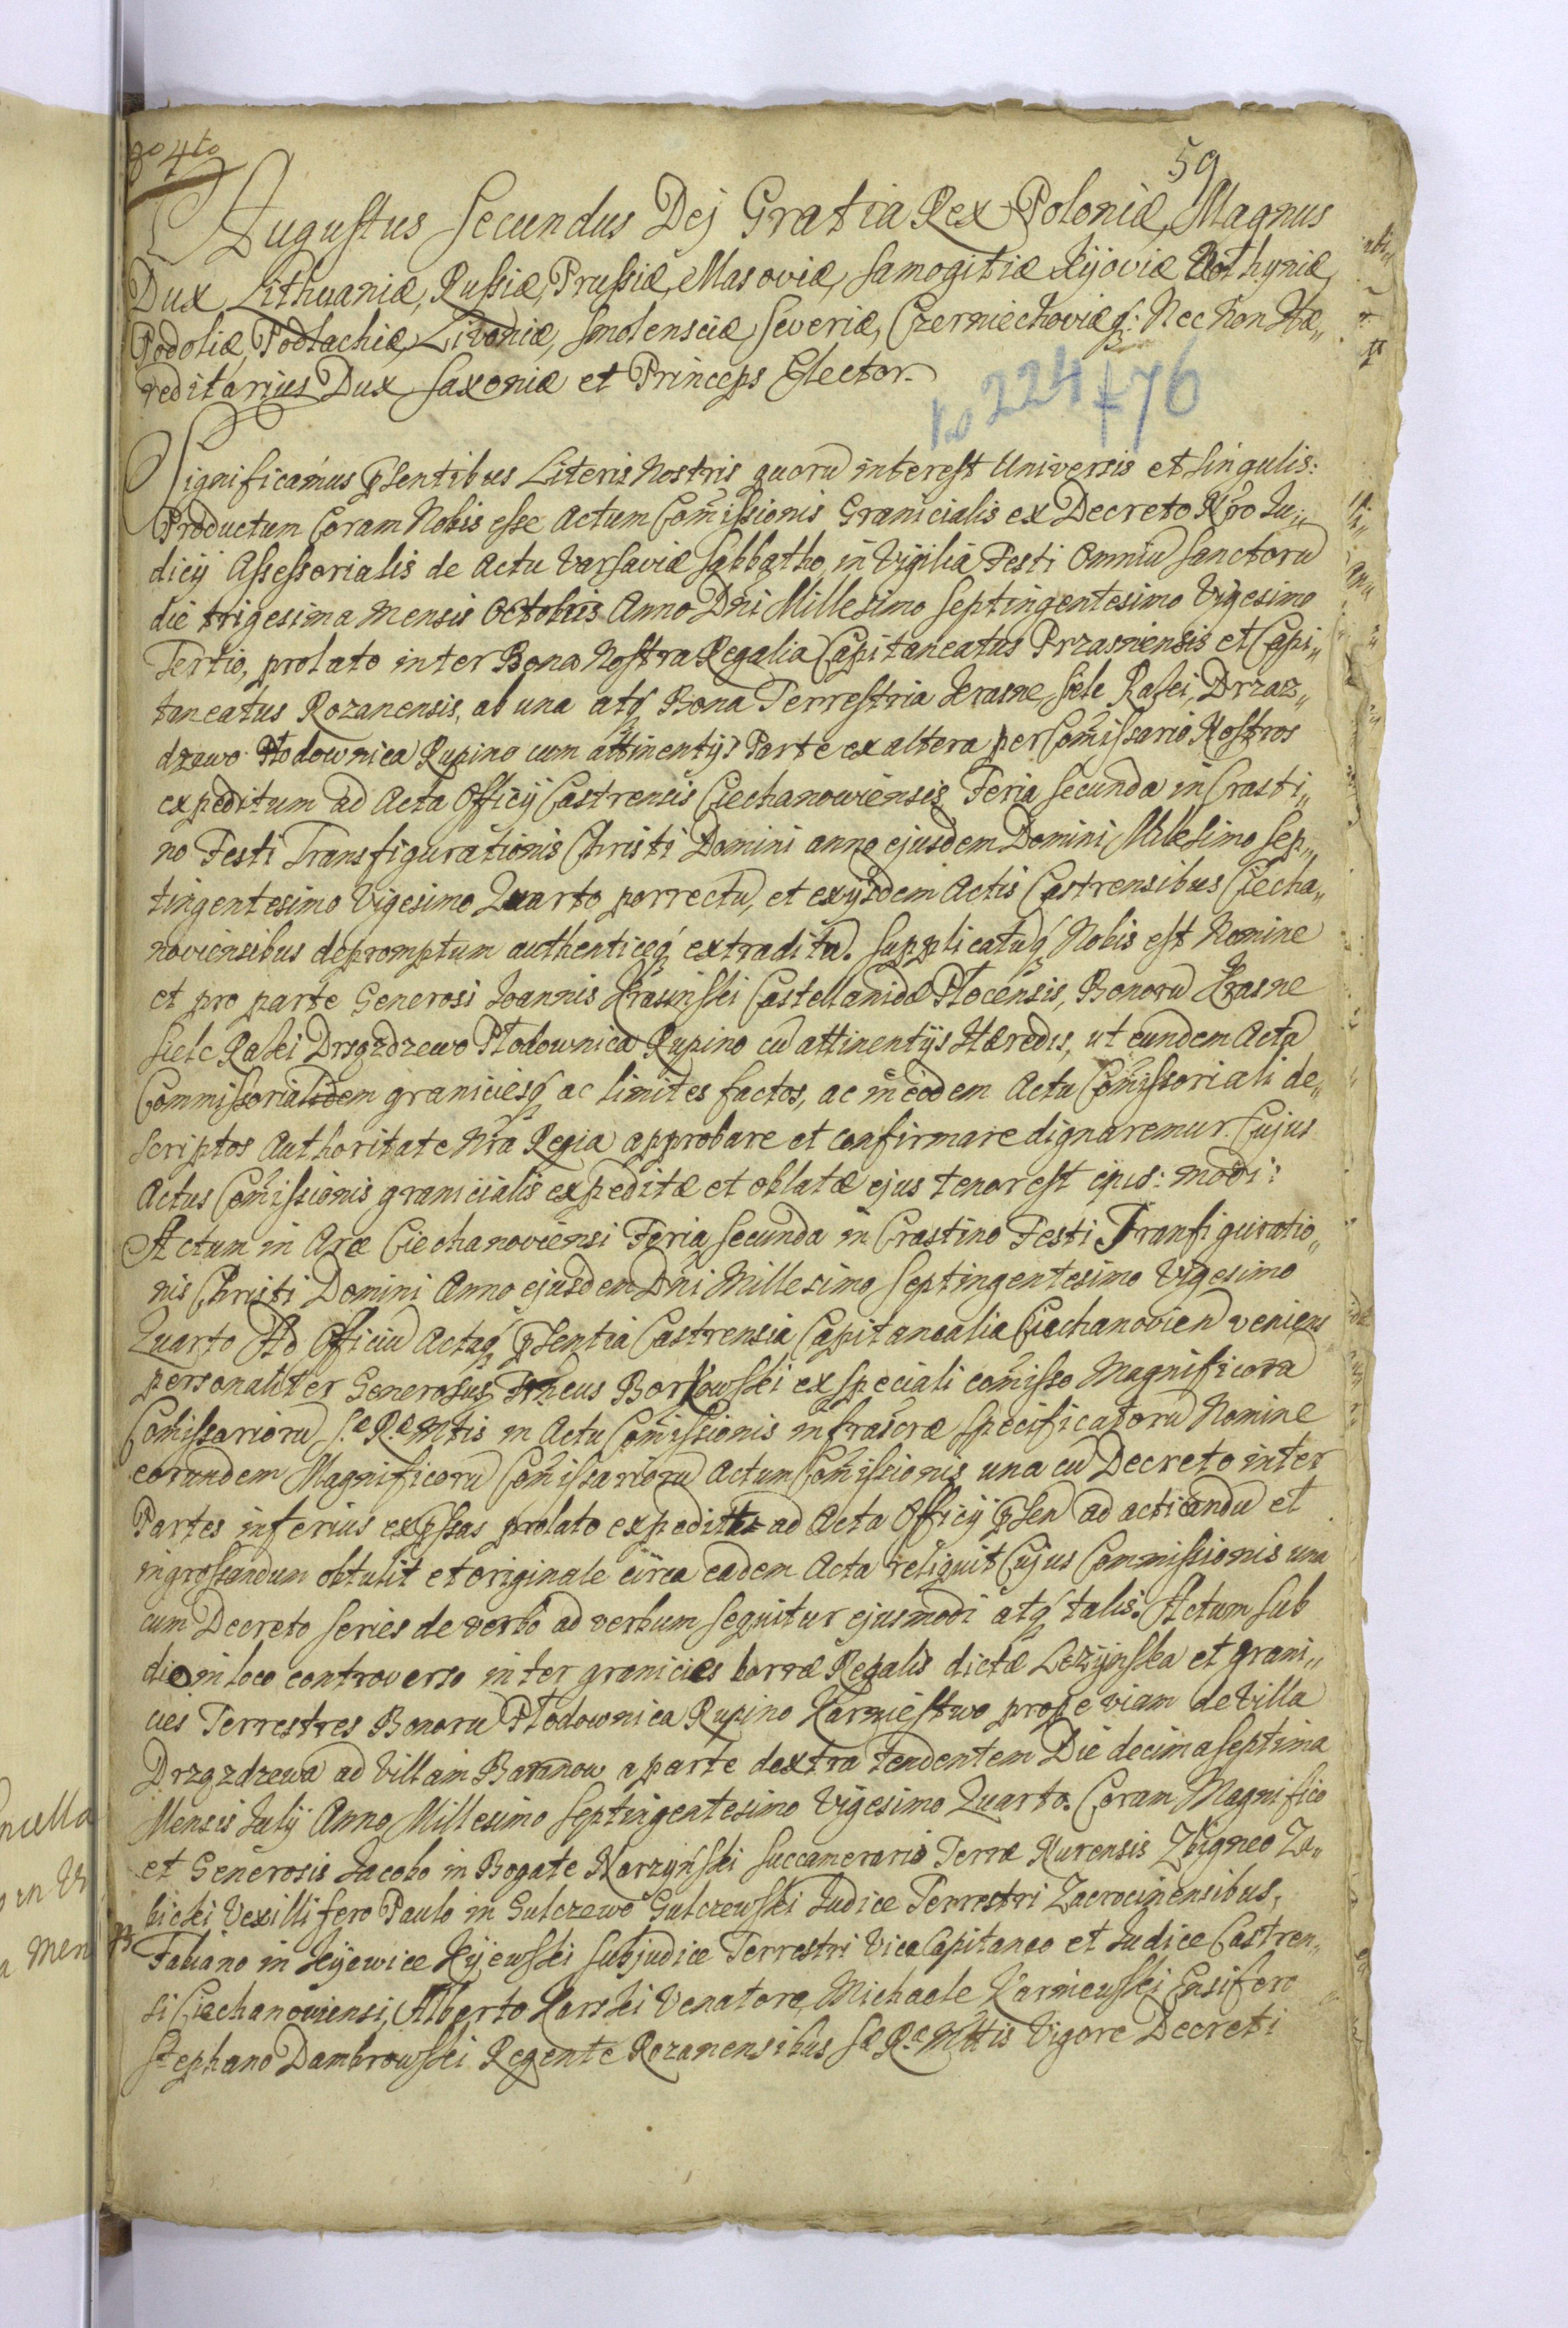 4to
59
Augustus Secundus Dej Gratia Rex Poloniæ, Magnus
Dux Lithuaniæ, Russiæ, Prussiæ, Masoviæ, Samogitiæ Kijoviæ Volhyniæ,
Podoliæ, Podlachiæ, Livoniæ, Smolensciæ Severiæ, Czerniechoviæq: Nec Non Hæ„
reditarius Dux Saxoniæ et Princeps Elector.
224 + 76
Significamus pñsentibus Literis Nostris quorũ interest Universis et Singulis:
Productum Coram Nobis esse Actum Com̃issionis Granicialis ex Decreto Nr̃o Ju„
dicij Assessorialis de Actu Varsaviæ Sabbatho, in Vigilia Festi Omniũ Sanctorũ
die trigesima Mensis Octobris Anno Dñi Millesimo Septingentesimo Vigesimo
Tertio, prolato inter Bona Nostra Regalia Capitaneatus Przasniensis et Capi„
taneatus Rozanensis, ab una atq Bona Terrestria Krasne, Sielc Raki, Drzaz„
dzewo Płodownica Rupino cum attinentijs Parte ex altera per Com̃issario Nostros
expeditum ad Acta Officij Castrensis Ciechanoviensis Feria Secunda in Crasti„
no Festi Transfigurationis Christi Domini anno ejusdem Domini Millesimo Sep„
tingentesimo Vigesimo Quarto porrectũ, et exijsdem Actis Castrensibus Ciecha„
noviensibus depromptum authenticeq extraditũ. Supplicatũq Nobis est Nomine
et pro parte Generosi Joannis Krasinski Castellanidæ Płocensis, Bonorũ Krasne
Sielc Raki Drzgzdzewo Płodownica Rupino cũ attinentijs Hæredis, ut eundem Acta
Commissorialidem graniciesq ac limites factos, ac in eodem Actu Com̃issoriali de„
scriptos Authoritate Nr̃a Regia approbare et confirmare dignaremur. Cujus
Actus Com̃issionis granicialis expeditæ et oblatæ ejus tenor est ejus: modi:
Actum in Arce Ciechanoviensi Feria Secunda in Crastino Festi Tranfiguratio„
nis Christi Domini Anno ejusdem Dñi Millesimo Septingentesimo Vigesimo
Quarto Ad Officiũ Actaq pñsentia Castrensia Capitanealia Ciechanovien veniens
personaliter Generosus Borkowski ex speciali com̃isso Magnificorũ
Com̃issariorũ S.æ R.æ Mttis in Actu Com̃issionis infrascræ Specificatorũ Nomine
eorundem Magnificorũ Com̃issariorũ Actum Com̃issionis una cũ Decreto inter
Partes inferius expssas prolato expedit ad Acta Officij pñsen ad acticandũ et
ingrossandum obtulit et originale circa eadem Acta reliquit Cujus Commissionis una
cum Decreto series de verbo ad verbum sequitur ejusmodi atq talis. Actum Sub
dio in loco controverso inter granicies borræ Regalis dictæ Lezÿnska et grani„
cies Terrestres Bonorũ Płodownica Rupino Karniestwo prope viam de Villa
Drzgzdzewa ad Villam Baranow a parte dextra tendentem Die decima septima
Mensis Julij Anno Millesimo Septingentesimo Vigesimo Quarto. Coram Magnifico
et Generosis Jacobo in Bogate Narzyński Succamerario Terræ Nurensis Zbigneo Za„
bicki Vexillifero Paulo in Sulczewo Sulczewski Judice Terrestri Zacrocinensibus,
Fabiano in Kijewice Kijewski Subjudice Terrestri Vice Capitaneo et Judice Castren„
si Ciechanoviensi, Alberto Karski Venatore, Michaele Karniewski Ensifero
Stephano Dambrowski Regente Rozanensibus S.æ R.æ Mttis Vigore Decreti